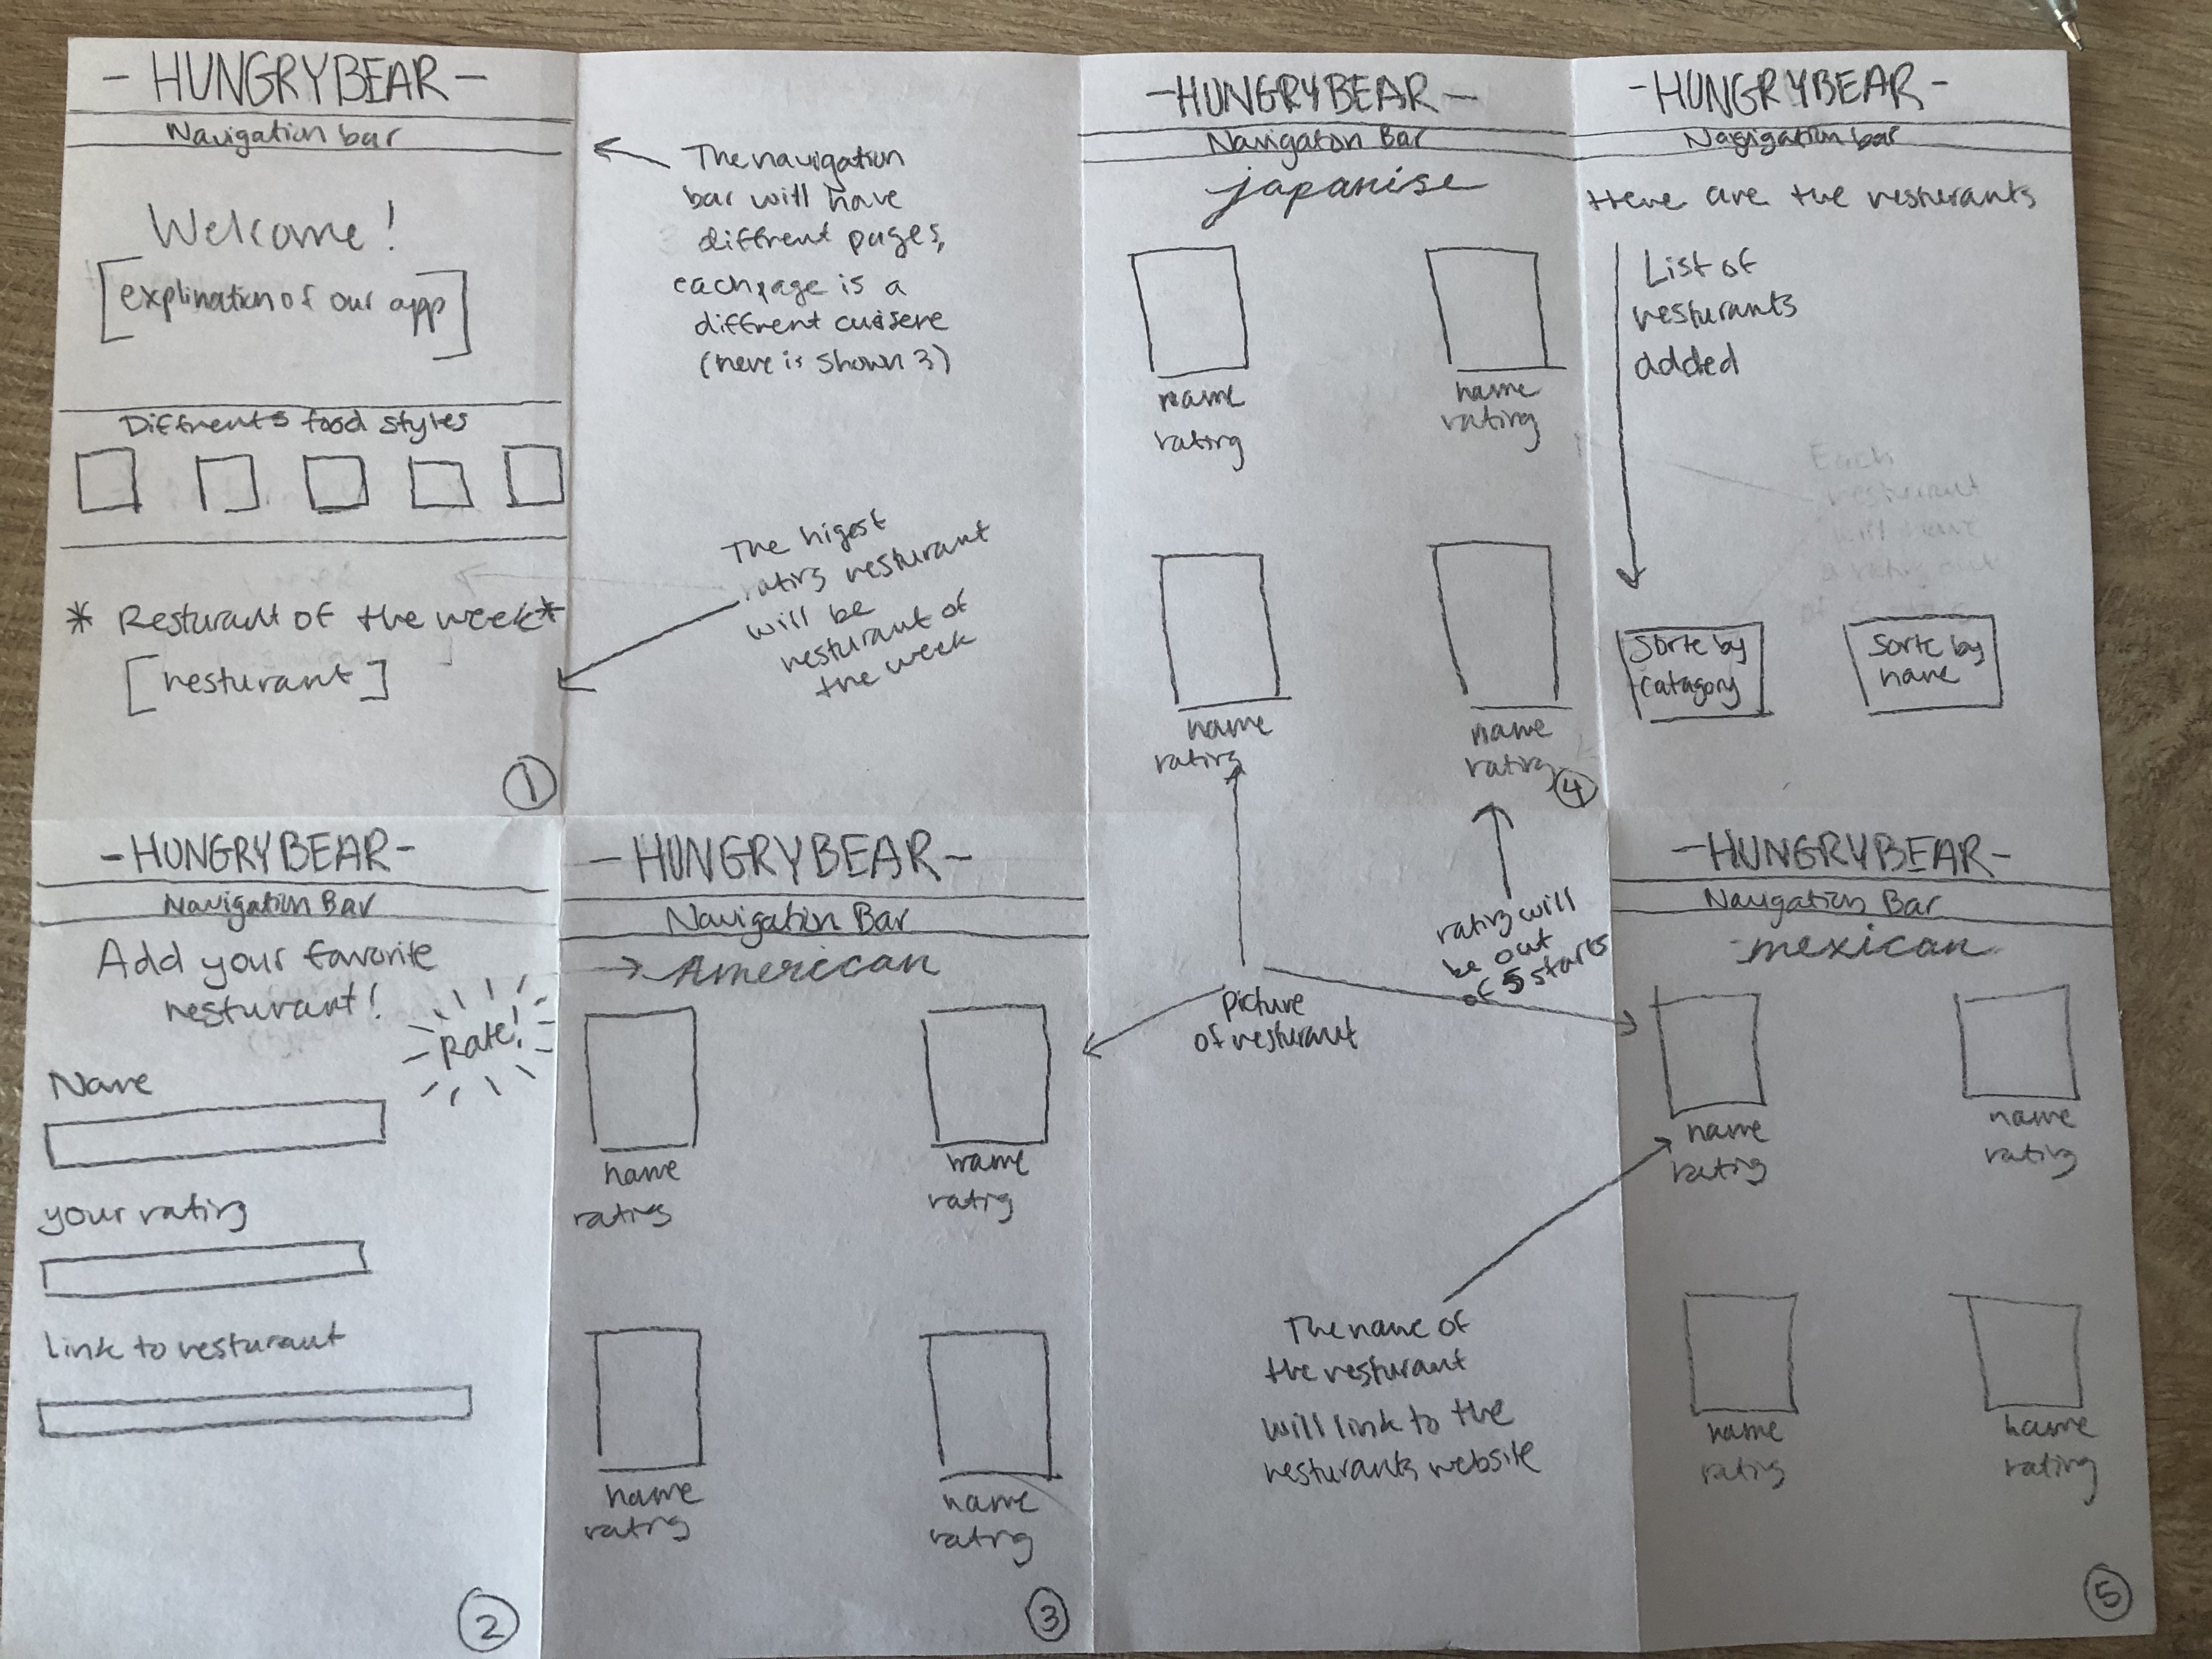 -HUNGRYBEAR-
Navigation bar
Welcome!
[explination of our app]
Difirents food styles
* Resturant of the week*
[resturant]
1
The navigation
bar will have
different pages,
each page is a
different cuisene
(here is shown 3)
The higest
rating resturant
will be
resturant of
the week
-HUNGRYBEAR-
Navigation Bar
japanise
name
rating
name
rating
name
rating
name
rating
4
-HUNGRYBEAR-
Navigation bar
these are the resturants
List of
resturants
added
Sorte by
catagory
Sorte by
name
-HUNGRYBEAR-
Navigation Bar
Add your favorite
resturant!
Rate!
Name
your rating
link to resturant
2
-HUNGRYBEAR-
Navigation Bar
American
name
rating
name
rating
name
rating
name
rating
3
rating will
be out
of 5 stars
picture
of resturant
The name of
the resturant
will link to the
resturants website
-HUNGRYBEAR-
Navigation Bar
-mexican
name
rating
name
rating
name
rating
name
rating
5